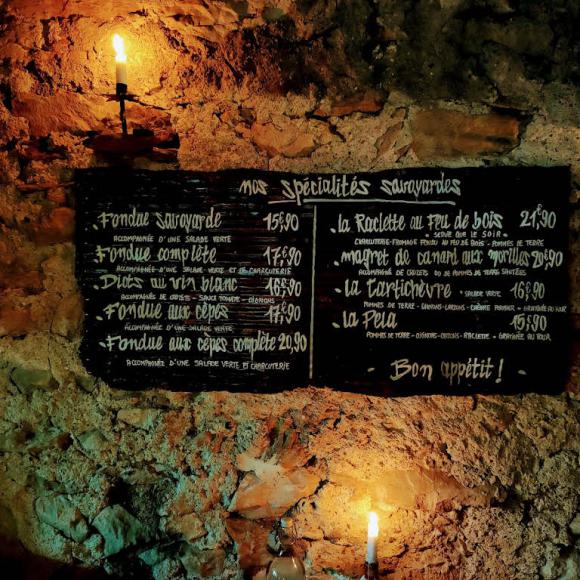 nos spécialités savoyardes
. Fondue savoyarde 15€90
ACCOMPAGNÉE D'UNE SALADE VERTE
Fondue complète 17€90
ACCOMPAGNÉE D'UNE SALADE VERTE ET DE CHARCUTERIE
. Diots au vin blanc 16€90
. Fondue aux cèpes 17€90
ACCOMPAGNÉE D'UNE SALADE VERTE
. Fondue aux cèpes complète 20,90
ACCOMPAGNÉE D'UNE SALADE VERTE ET CHARCUTERIE
. la Raclette au Feu de bois 21€90
- SERVIE QUE LE SOIR -
CHARCUTERIE - FROMAGE FONDU AU FEU DE BOIS - POMMES DE TERRE
. magret de canard aux morilles 20€90
ACCOMPAGNÉ DE CROZETS OU DE POMMES DE TERRE SAUTÉES
. la Tartichèvre - SALADE VERTE 16€90
POMMES DE TERRE - OIGNONS - LARDONS - CHÈVRE FERMIER - GRATINÉE AU FOUR
. la Pela 15€90
POMMES DE TERRE - OIGNONS - LARDONS - RACLETTE - GRATINÉE AU FOUR
- Bon appétit ! -